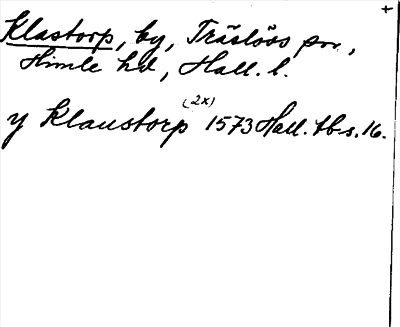 +
Klastorp, by, Träslövs sn.,
Himle hd, Hall. l.
(2x)
y Klaustorp 1573 Hall. tb s. 16.